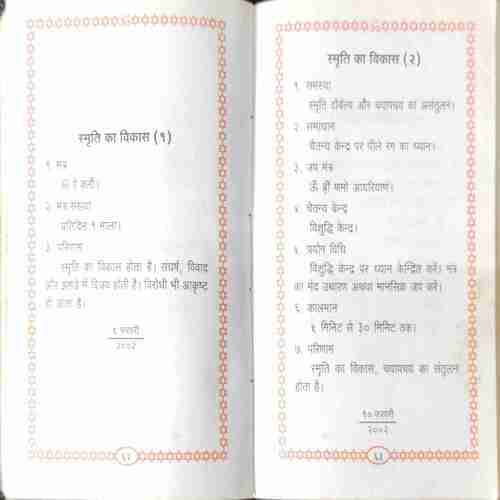 स्मृति का विकास (१)
१. मंत्र
ॐ ऐं क्लीं।
२. मंत्र संख्या
प्रतिदिन १ माला।
३. परिणाम
स्मृति का विकास होता है। संघर्ष, विवाद
और झगड़े में विजय होती है। विरोधी भी आकृष्ट
हो जाता है।
९ फरवरी
२००२
स्मृति का विकास (२)
१. समस्या
स्मृति दौर्बल्य और चयापचय का असंतुलन।
२. समाधान
चैतन्य केन्द्र पर पीले रंग का ध्यान।
३. जप मंत्र
ॐ ह्रीं णमो आयरियाणं।
४. चैतन्य केन्द्र
विशुद्धि केन्द्र।
५. प्रयोग विधि
विशुद्धि केन्द्र पर ध्यान केन्द्रित करें। मंत्र
का मंद उच्चारण अथवा मानसिक जप करें।
६. कालमान
५ मिनिट से ३० मिनिट तक।
७. परिणाम
स्मृति का विकास, चयापचय का संतुलन
होता है।
१० फरवरी
२००२